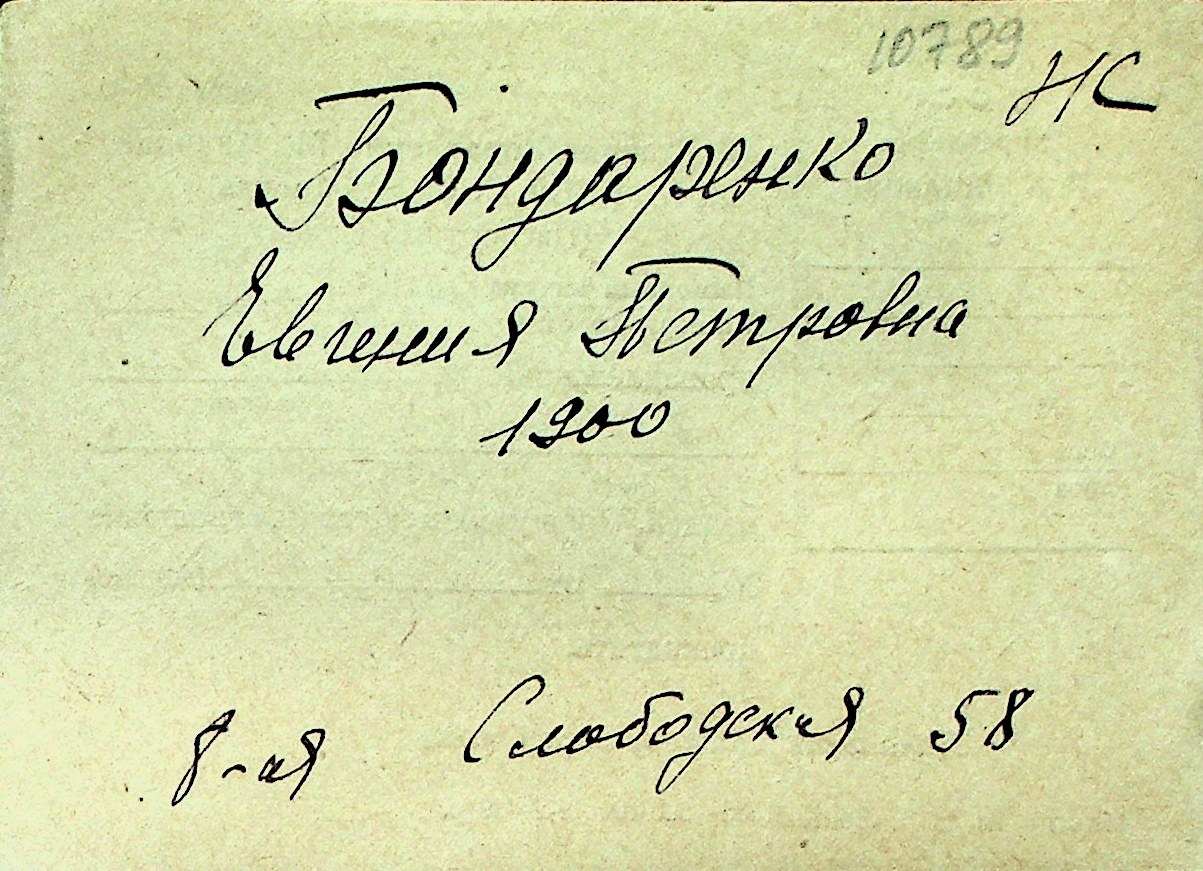 10789 НС
Бондаренко
Евгения Петровна
1900
8-ая Слободская 58